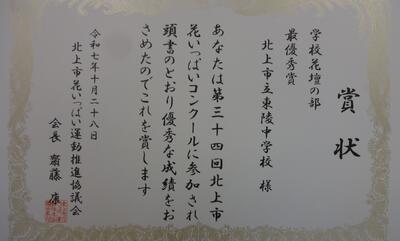 賞状
学校花壇の部
最優秀賞
北上市立東陵中学校 様
あなたは第三十四回北上市
花いっぱいコンクールに参加され
頭書のとおり優秀な成績をお
さめたのでこれを賞します
令和七年十月二十八日
北上市花いっぱい運動推進協議会
会長 齋藤 康